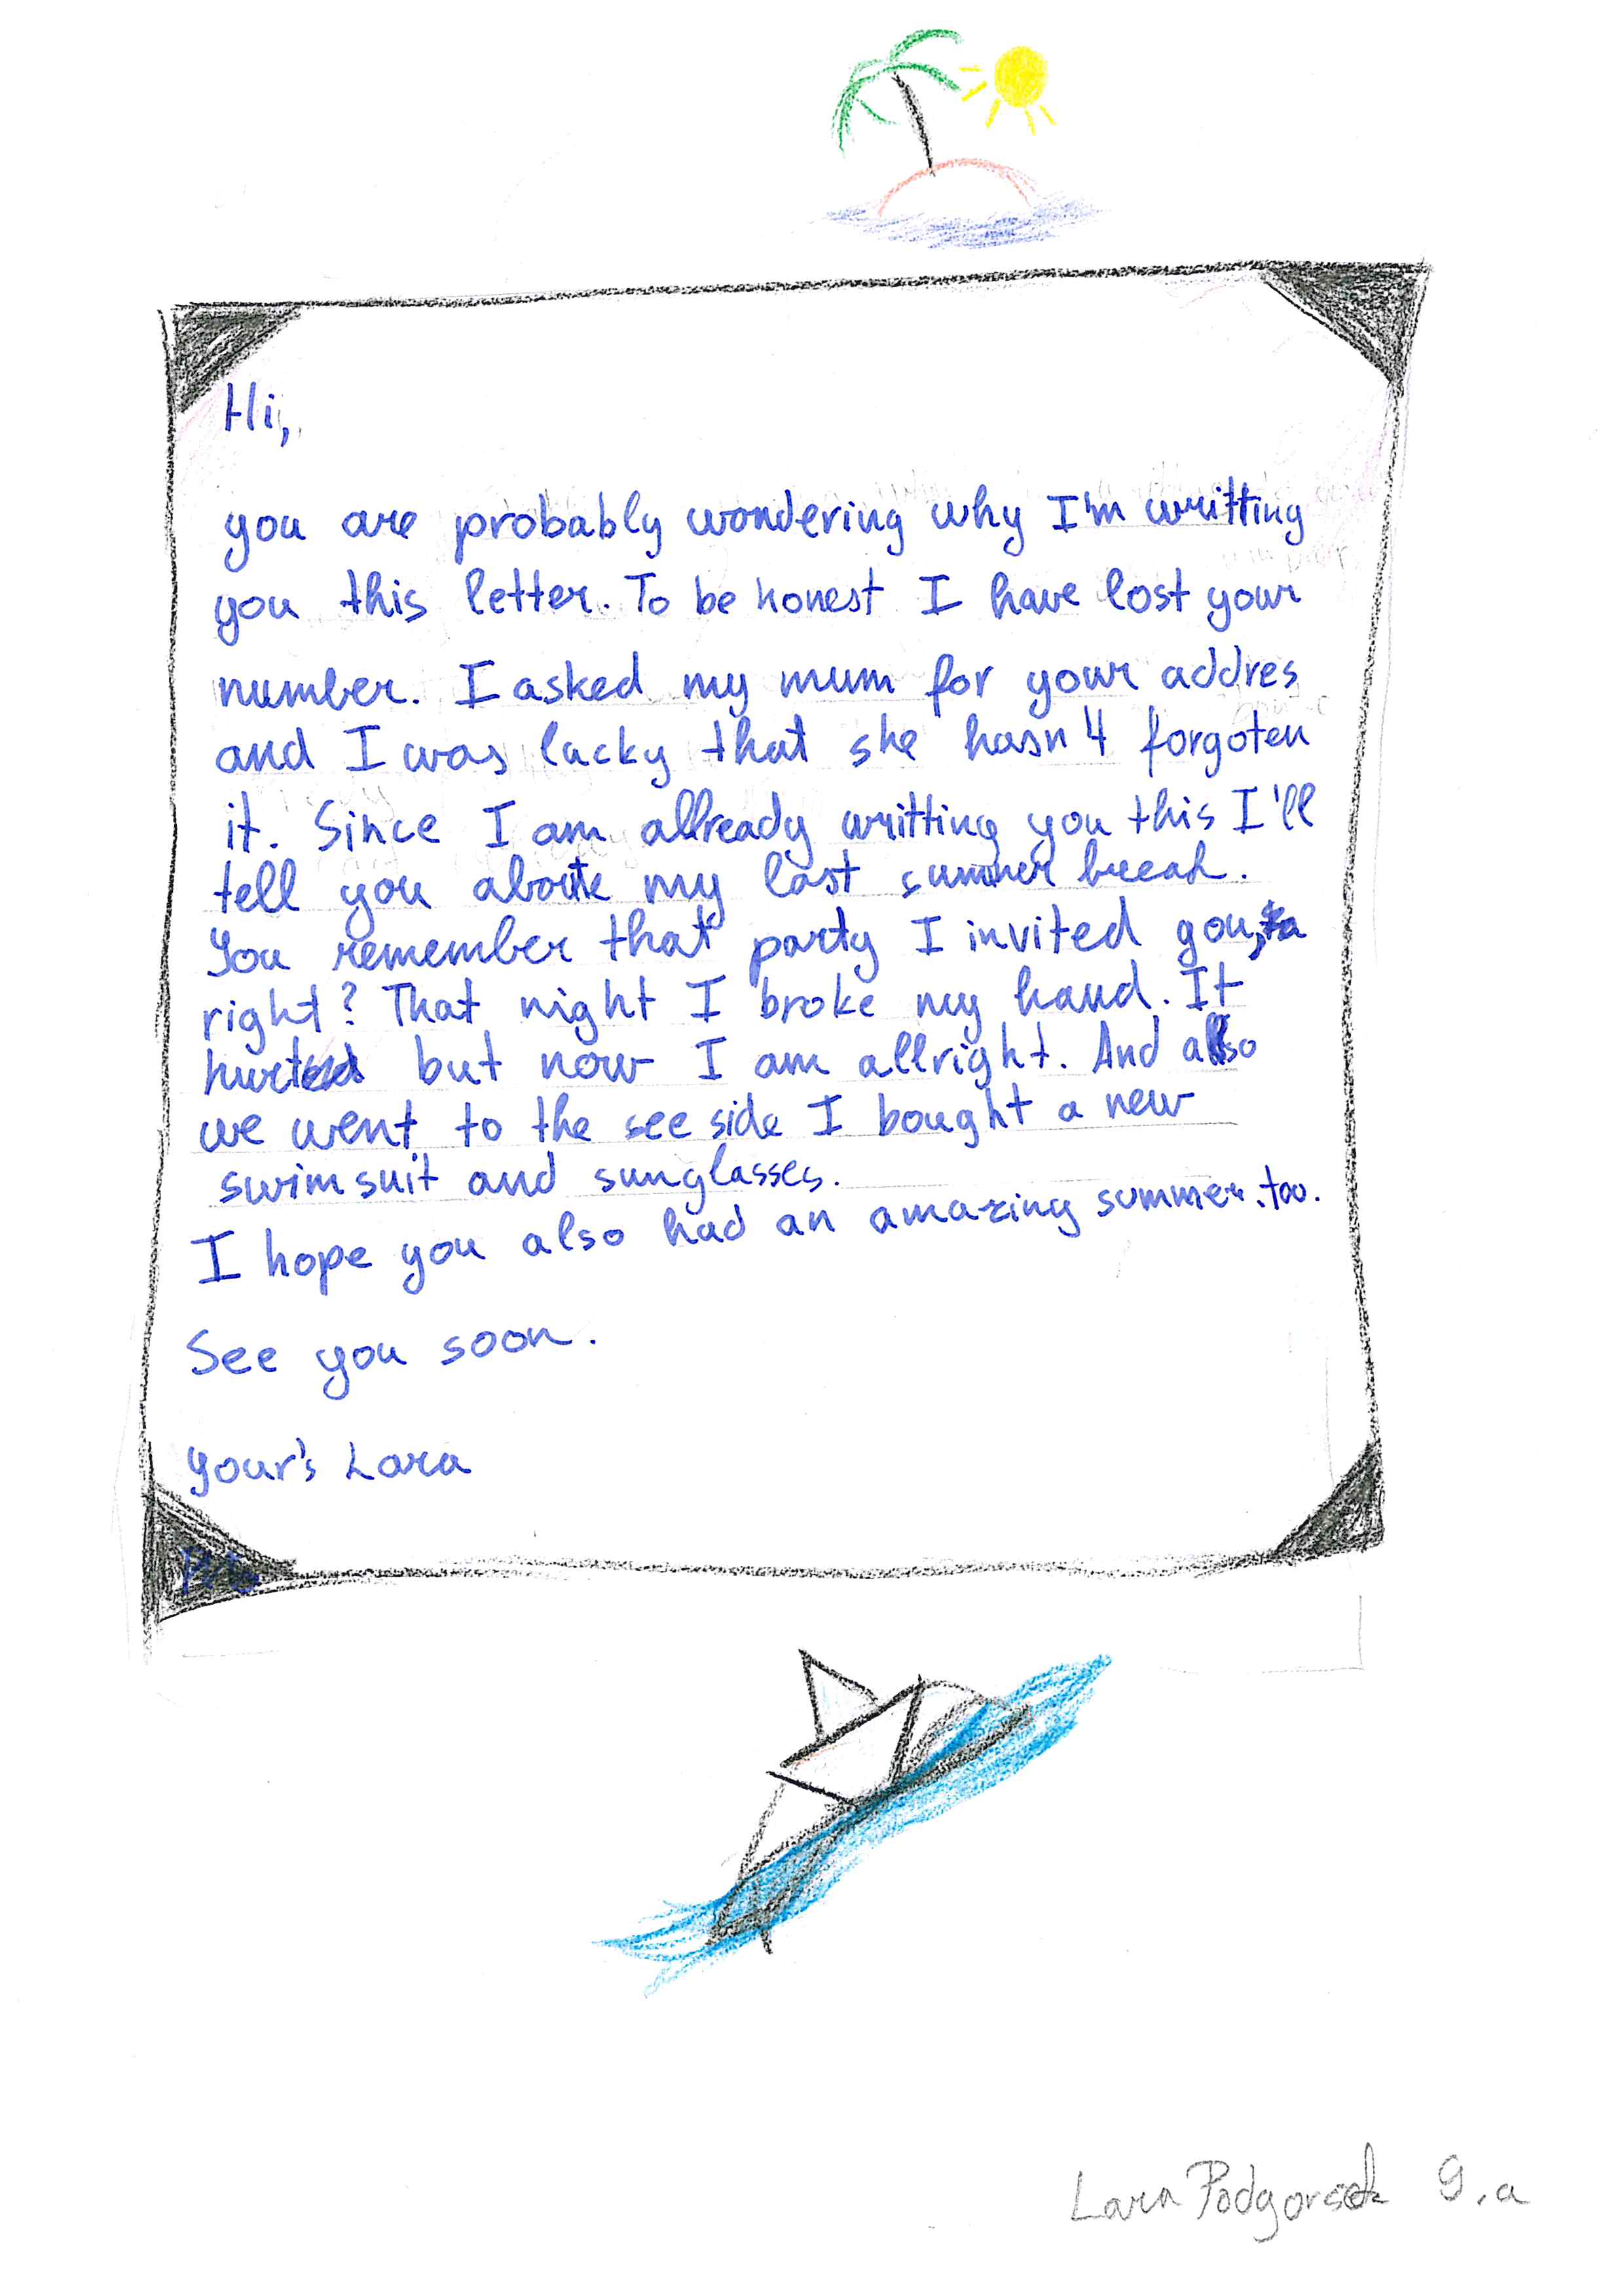 Hi,
you are probably wondering why I'm writting
you this letter. To be honest I have lost your
number. I asked my mum for your addres
and I was lucky that she hasn't forgoten
it. Since I am allready writting you this I'll
tell you about my last summer break.
You remember that party I invited you,
right? That night I broke my hand. It
hurted but now I am allright. And also
we went to the see side I bought a new
swimsuit and sunglasses.
I hope you also had an amazing summer too.
See you soon.
your's Lara
Lara 9.a